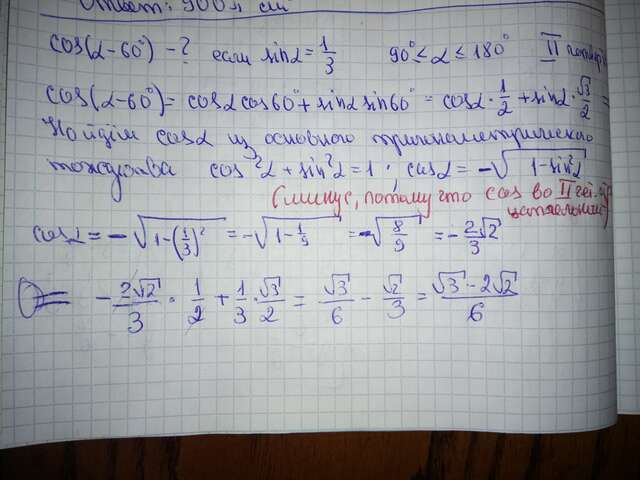 Ответ: 900π см²
cos(α-60°) - ? если sinα = 1/3 90° ≤ α ≤ 180° II
cos(α-60°) = cosα cos60° + sinα sin60° = cosα · 1/2 + sinα · √3/2 =
Найдём cosα из основного тригонометрического
тождества cos²α + sin²α = 1; cosα = -√(1-sin²α)
(минус, потому что cos во II чет.
cosα = -√(1-(1/3)²) = -√(1-1/9) = -√(8/9) = -2√2/3
= -2√2/3 · 1/2 + 1/3 · √3/2 = √3/6 - √2/3 = (√3-2√2)/6